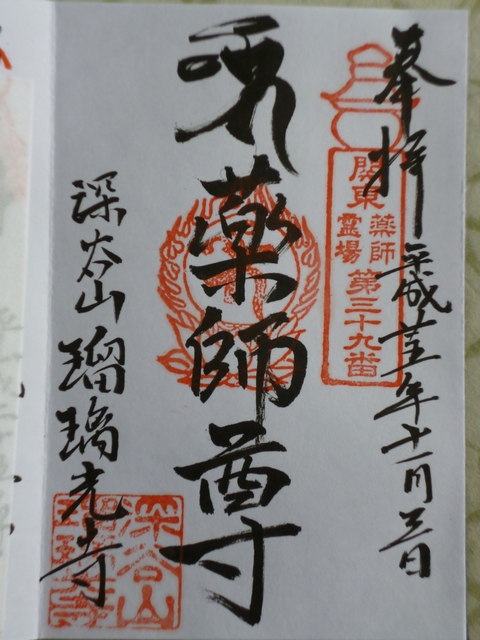 奉拝 平成廿五年十一月三日
関東
薬師
霊場
第三十九番
薬師尊
深谷山 瑠璃光寺
深谷山